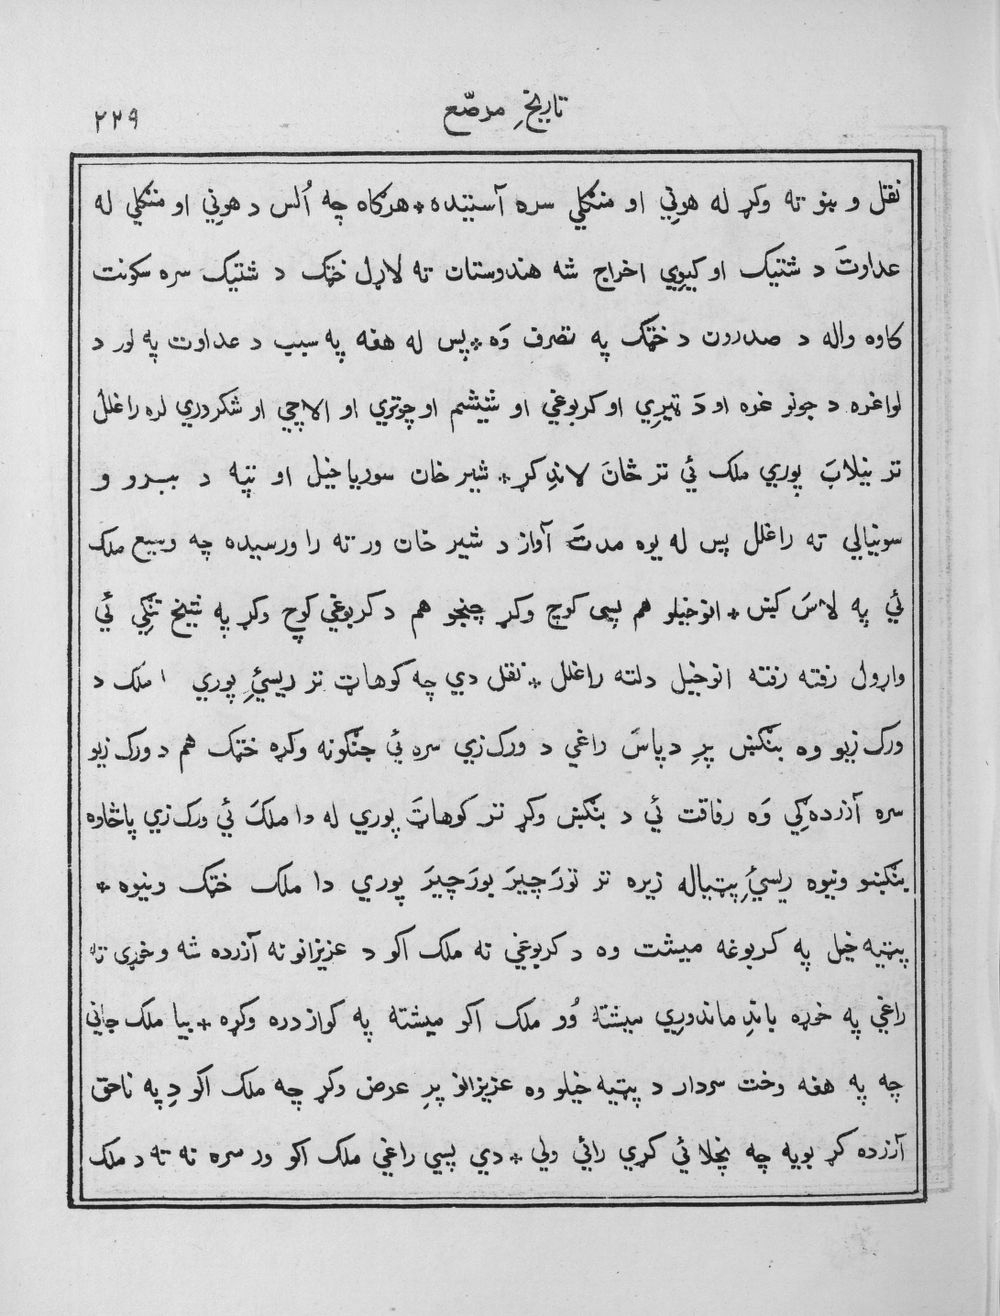 تاریخِ مرصّع
۲۲۹
نقل و بنو ته وکړ له هوني او منګلي سره آستیده * هرګاه چه اُلس د هوني او منګلي له
عداوتَ د شتیک او کیوي اخراج شه هندوستان ته لاړل خټک د شتیک سره سکونت
کاوه واله د صدرون د خټک په تصرف وَه * پس له هغه په سبب د عداوت په لور د
لواغره د چونو غره او دَ تیرِي او کربوغي او شیشم او چوتري او الاچي او شکردرې لره راغلل
تر نیلابَ پوري ملک ئي تر ځانَ لاندِ کړ * شیر خان سوریا خیل او تپه د
سونیالي ته راغلل پس له یوه مدتَ آواز د شیر خان ور ته را ورسیده چه وسیع ملک
ئي په لاسَ کیښ * انوخیلو هم پسی کوچ وکړ چنجو هم د کربوغي کوچ وکړ په شیخ تنګي ئي
واړول رفته رفته انوخیل دلته راغلل * نقل دي چه کوهاټ تر ریسئِ پوري ملک د
ورک زیو وه بنګښ پرِ دپاسَ راغي د ورک‌زي سره ئي جنګونه وکړه خټک هم د ورک زیو
سره آزرده‌ګي وَه رفاقت ئي د بنګښ وکړ تر کوهاټَ پوري له دا ملکَ ئي ورک‌زي پاڅاوه
بنګښو ونیوه ریسئِ پټیاله زیړه تر توَرَ چپرَ یورَچپرَ پوري دا ملک خټک ونیوه *
پټیه خیل په کربوغه میشت وه د کربوغي ته ملک اکو د عزیزانو نه آزرده شه و خړی ته
راغي په خوړه باندِ ماندورِي میشتهٔ وُو ملک اکو میشته په کواز دره وکړه * بیا ملک جانی
چه په هغه وخت سردار د پټیه خیلو وه عزیزانو پرِ عرض وکړ چه ملک اکو دِ په ناحق
آزرده کړ بویه چه پخلا ئي کړي رائي ولي * دي پسي راغي ملک اکو ور سره نه ته د ملک